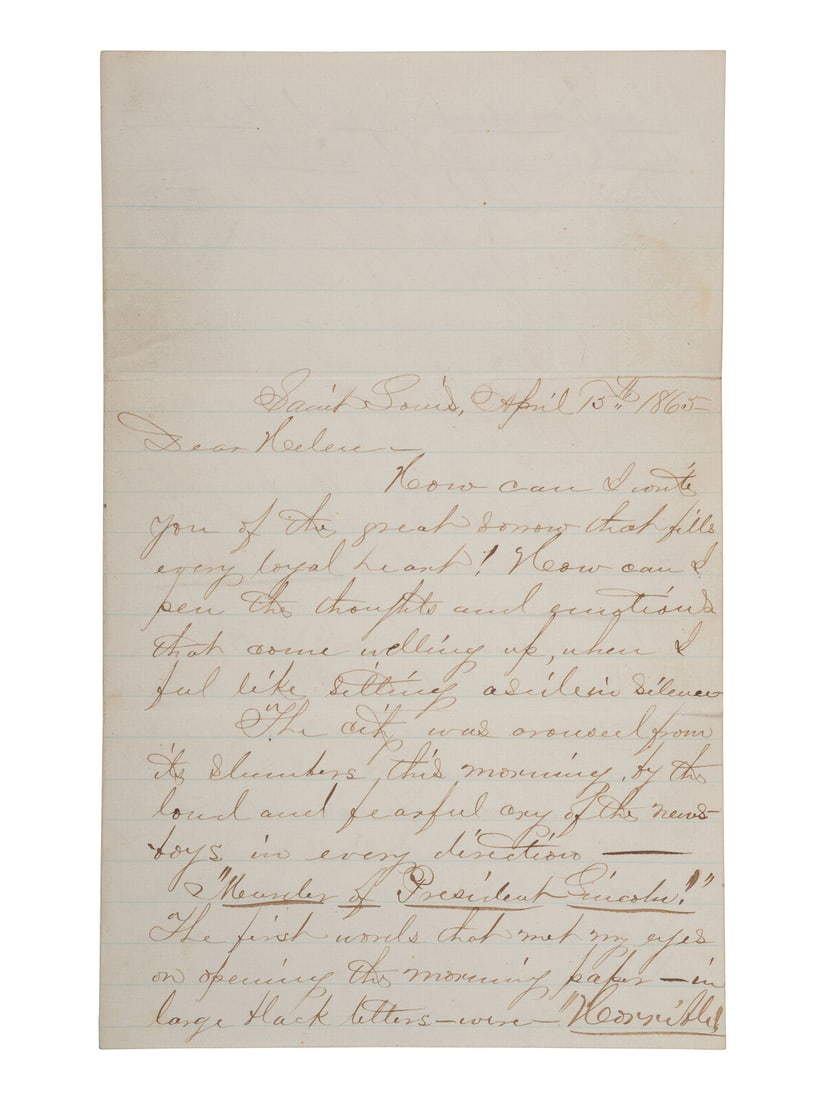 Saint Louis, April 15th 1865—
Dear Helen—
How can I write
you of the great sorrow that fills
every loyal heart! How can I
pen the thoughts and emotions
that come welling up, when I
feel like sitting aside in silence
The city was aroused from
its slumbers, this morning, by the
loud and fearful cry of the news-
boys in every direction —
"Murder of President Lincoln!"
The first words that met my eyes
on opening the morning paper — in
large black letters — were — "Horrible